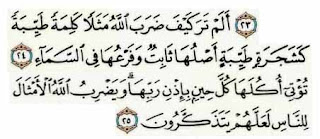 ٢٣ أَلَمْ تَرَ كَيْفَ ضَرَبَ اللَّهُ مَثَلًا كَلِمَةً طَيِّبَةً
كَشَجَرَةٍ طَيِّبَةٍ أَصْلُهَا ثَابِتٌ وَفَرْعُهَا فِي السَّمَاءِ ٢٤
تُؤْتِي أُكُلَهَا كُلَّ حِينٍ بِإِذْنِ رَبِّهَا ۗ وَيَضْرِبُ اللَّهُ الْأَمْثَالَ
لِلنَّاسِ لَعَلَّهُمْ يَتَذَكَّرُونَ ٢٥